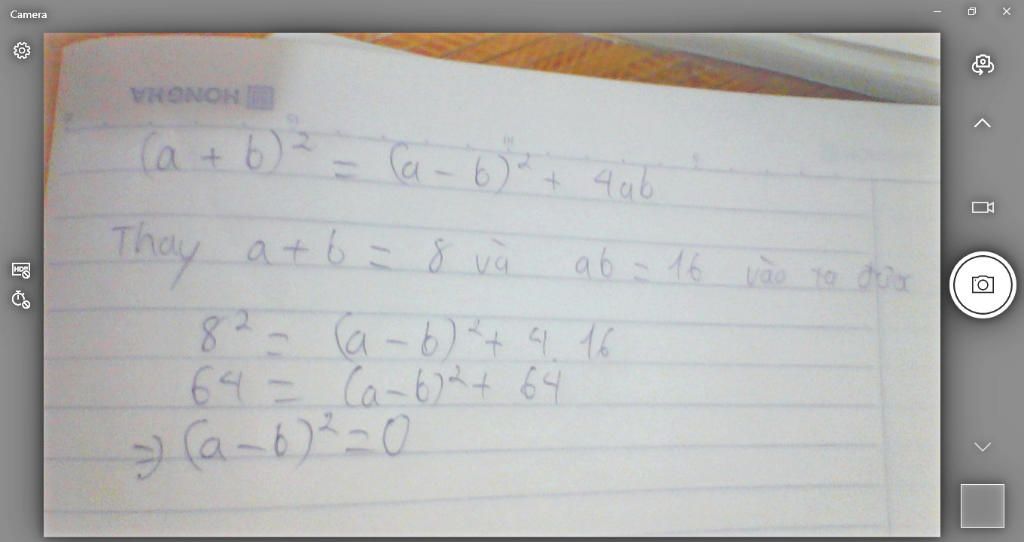 Camera
HONGHA
(a + b)² = (a - b)² + 4ab
Thay a + b = 8 và ab = 16 vào ta được
8² = (a - b)² + 4.16
64 = (a-b)² + 64
⇒ (a - b)² = 0